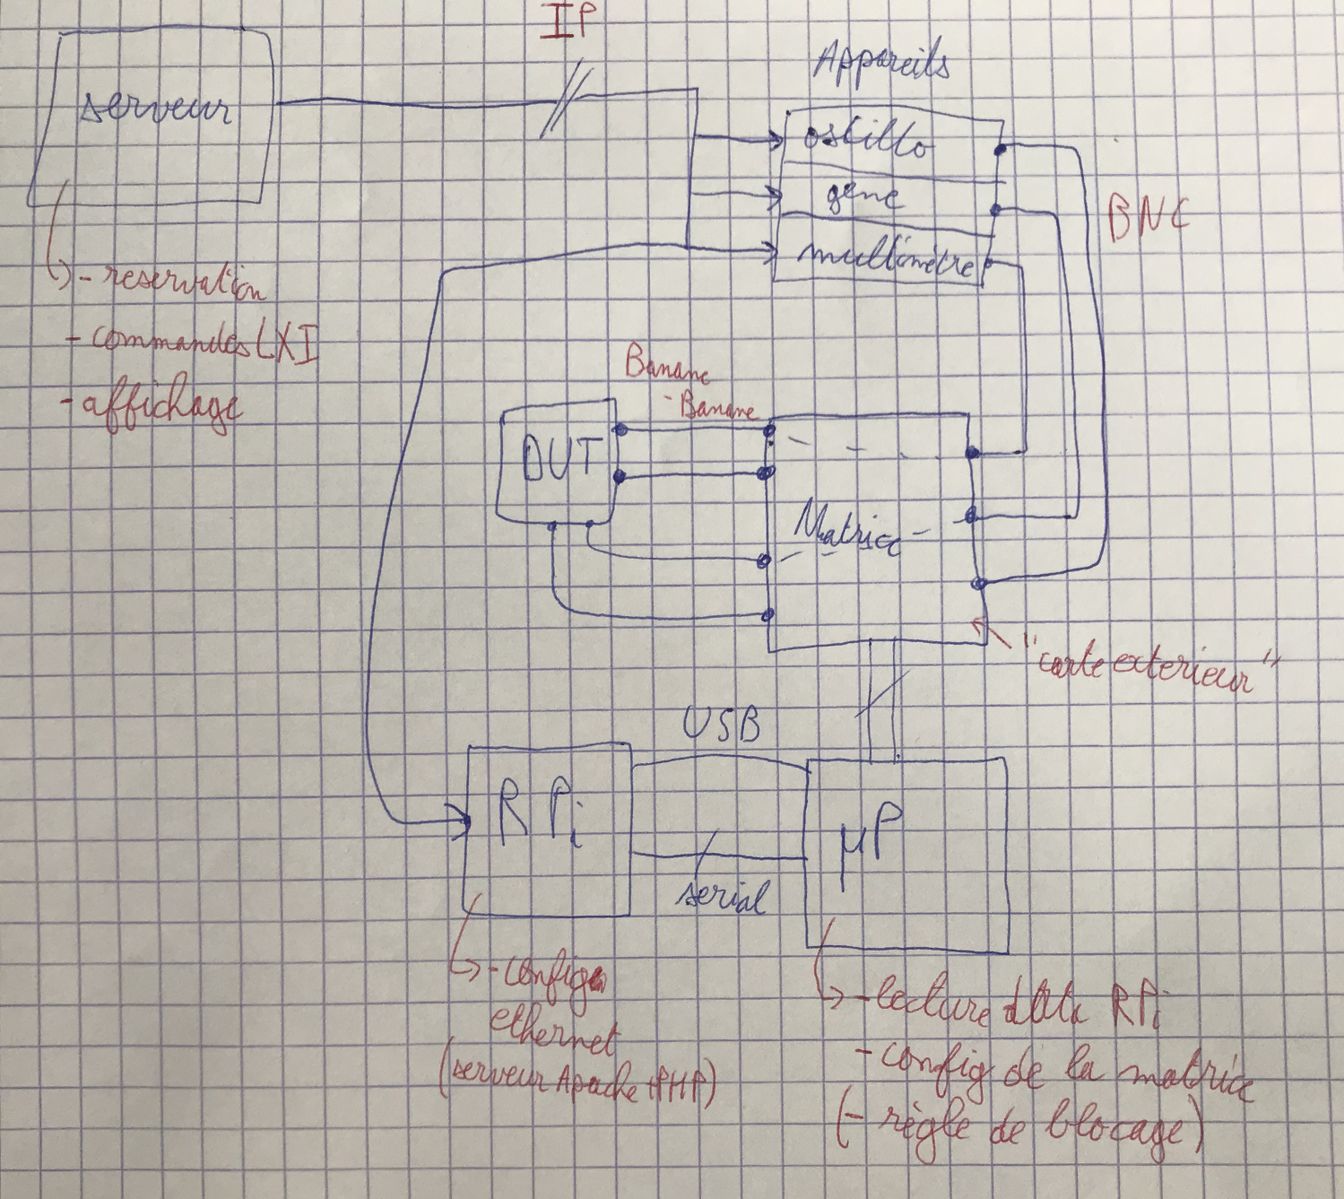 IP
Appareils
serveur
oscillo
géné
BNC
multimètre
- reservation
- commandes LXI
- affichage
Banane
- Banane
DUT
Matrice
"carte exterieur"
USB
RPi
µP
serial
- config
ethernet
(serveur Apache + PHP)
- lecture data RPi
- config de la matrice
(- règle de blocage)